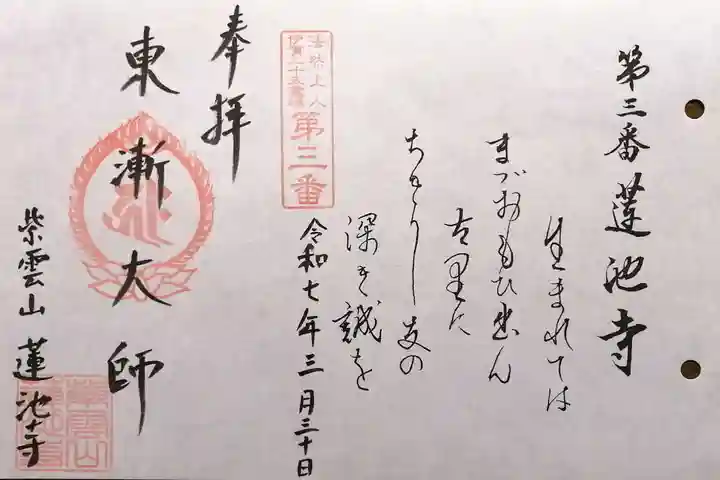 第三番 蓮池寺
生まれては
まづおもひ出ん
古里に
ちぎりし友の
深き誠を
法然上人
伊賀二十五霊場
第三番
令和七年三月三十日
奉拝
東漸大師
紫雲山 蓮池寺